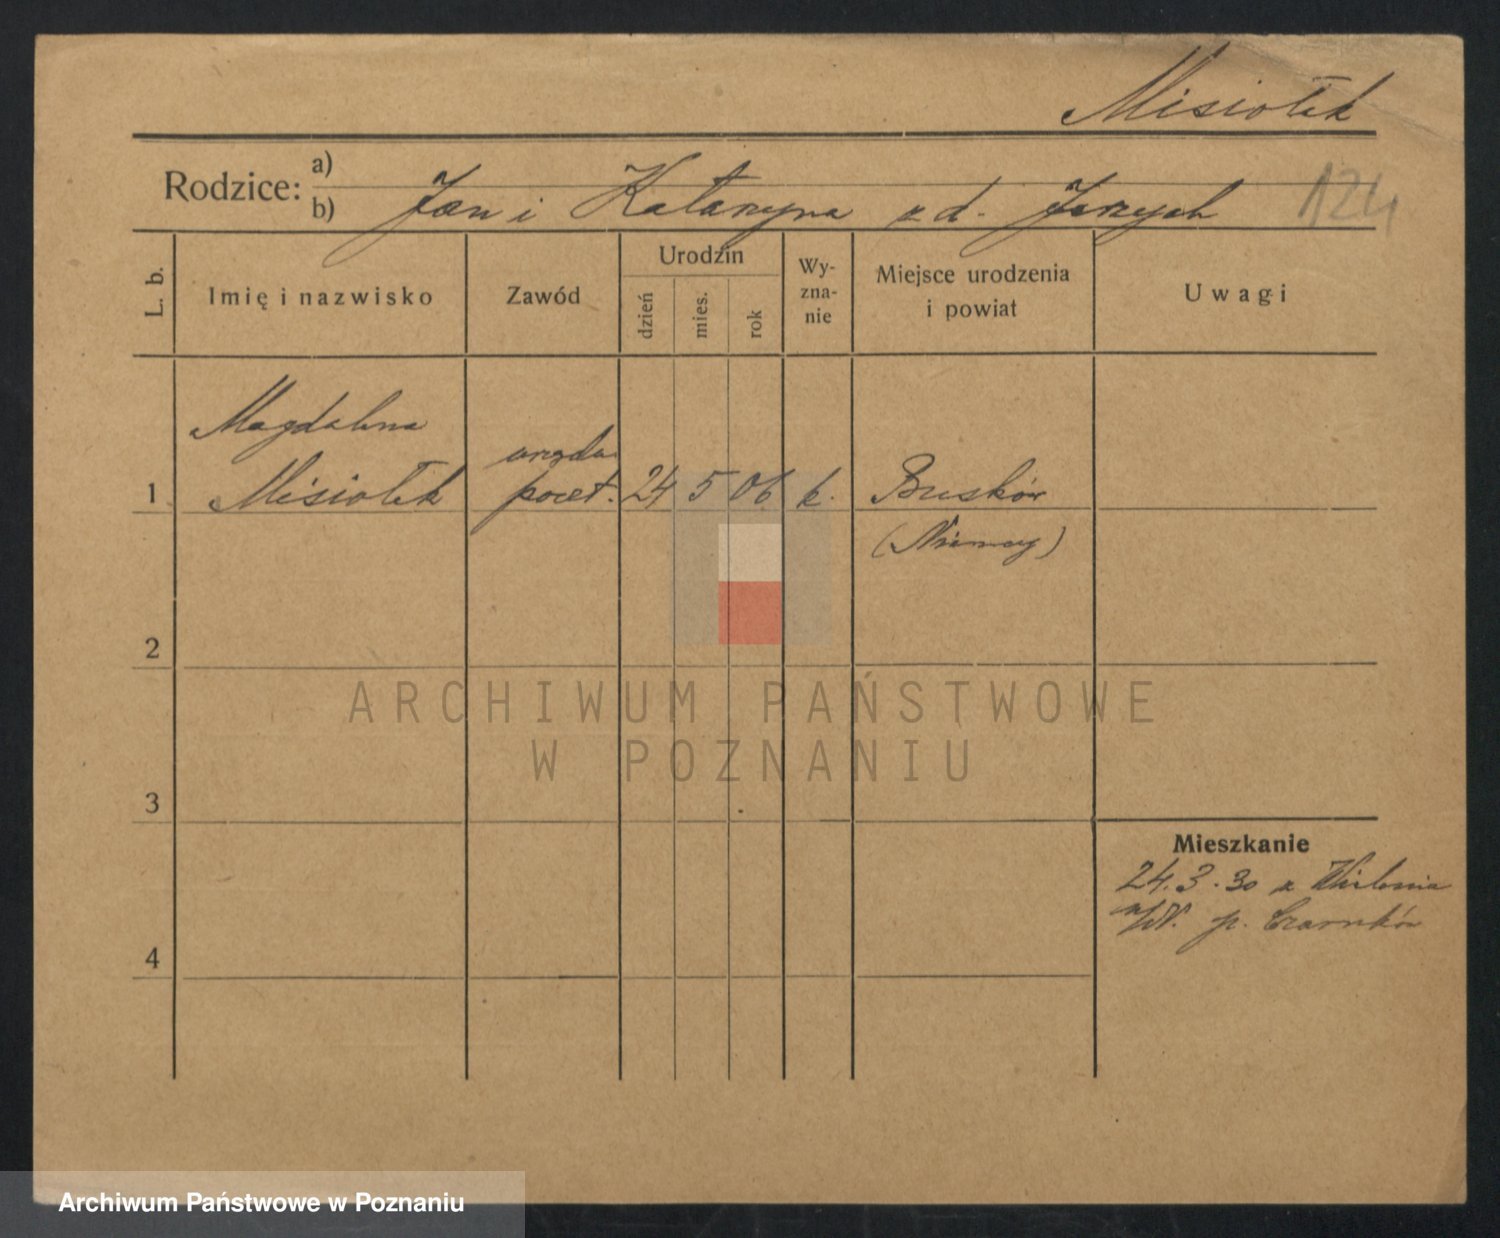 Misiołek
Rodzice: a)
b) Jan i Katarzyna z d. Jerzych
124
L. b.
Imię i nazwisko
Zawód
Urodzin
dzień
mies.
rok
Wy-
zna-
nie
Miejsce urodzenia
i powiat
Uwagi
Magdalena
1 Misiołek
urzędn.
poczt.
24 5 06 k.
Busków
(Niemcy)
2
3
4
Mieszkanie
24.3.30 z Wielenia
n/N. p. Czarnków
ARCHIWUM PAŃSTWOWE
W POZNANIU
Archiwum Państwowe w Poznaniu